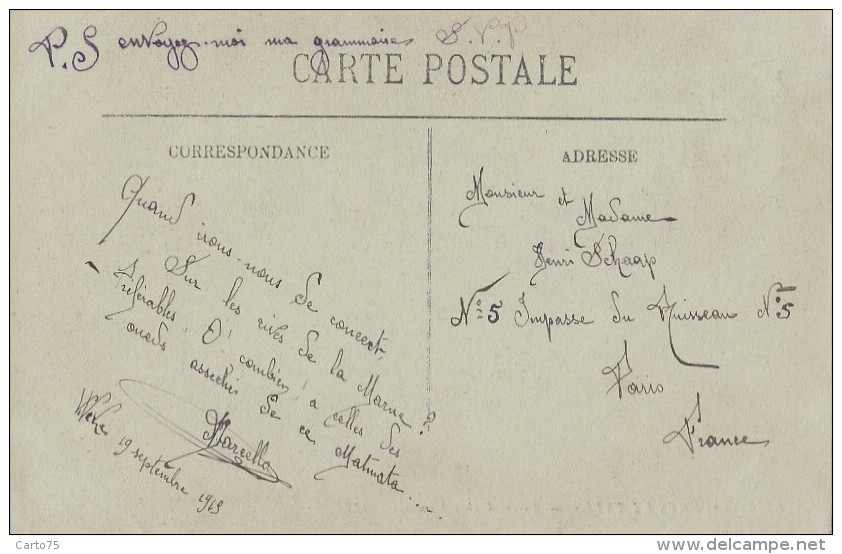 P.S envoyez-moi ma grammaire S.V.P
CARTE POSTALE
CORRESPONDANCE
ADRESSE
Quand irons-nous de concert,
Sur les rives de la Marne ?
Préférables, O! combien, à celles des
oueds assechés de ce Matmata.....
Marcella
19 septembre 1913
Monsieur et
Madame
Henri Schaap
N° 5 Impasse du Ruisseau N° 5
Paris
France
Carto75
www.delcampe.net